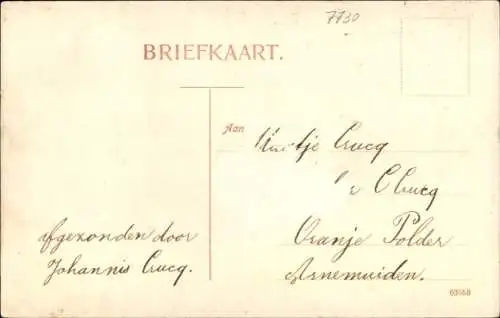 7730
BRIEFKAART.
Aan
Crucq
C Crucq
Oranje Polder
Arnemuiden.
afgezonden door
Johannis Crucq.
63558